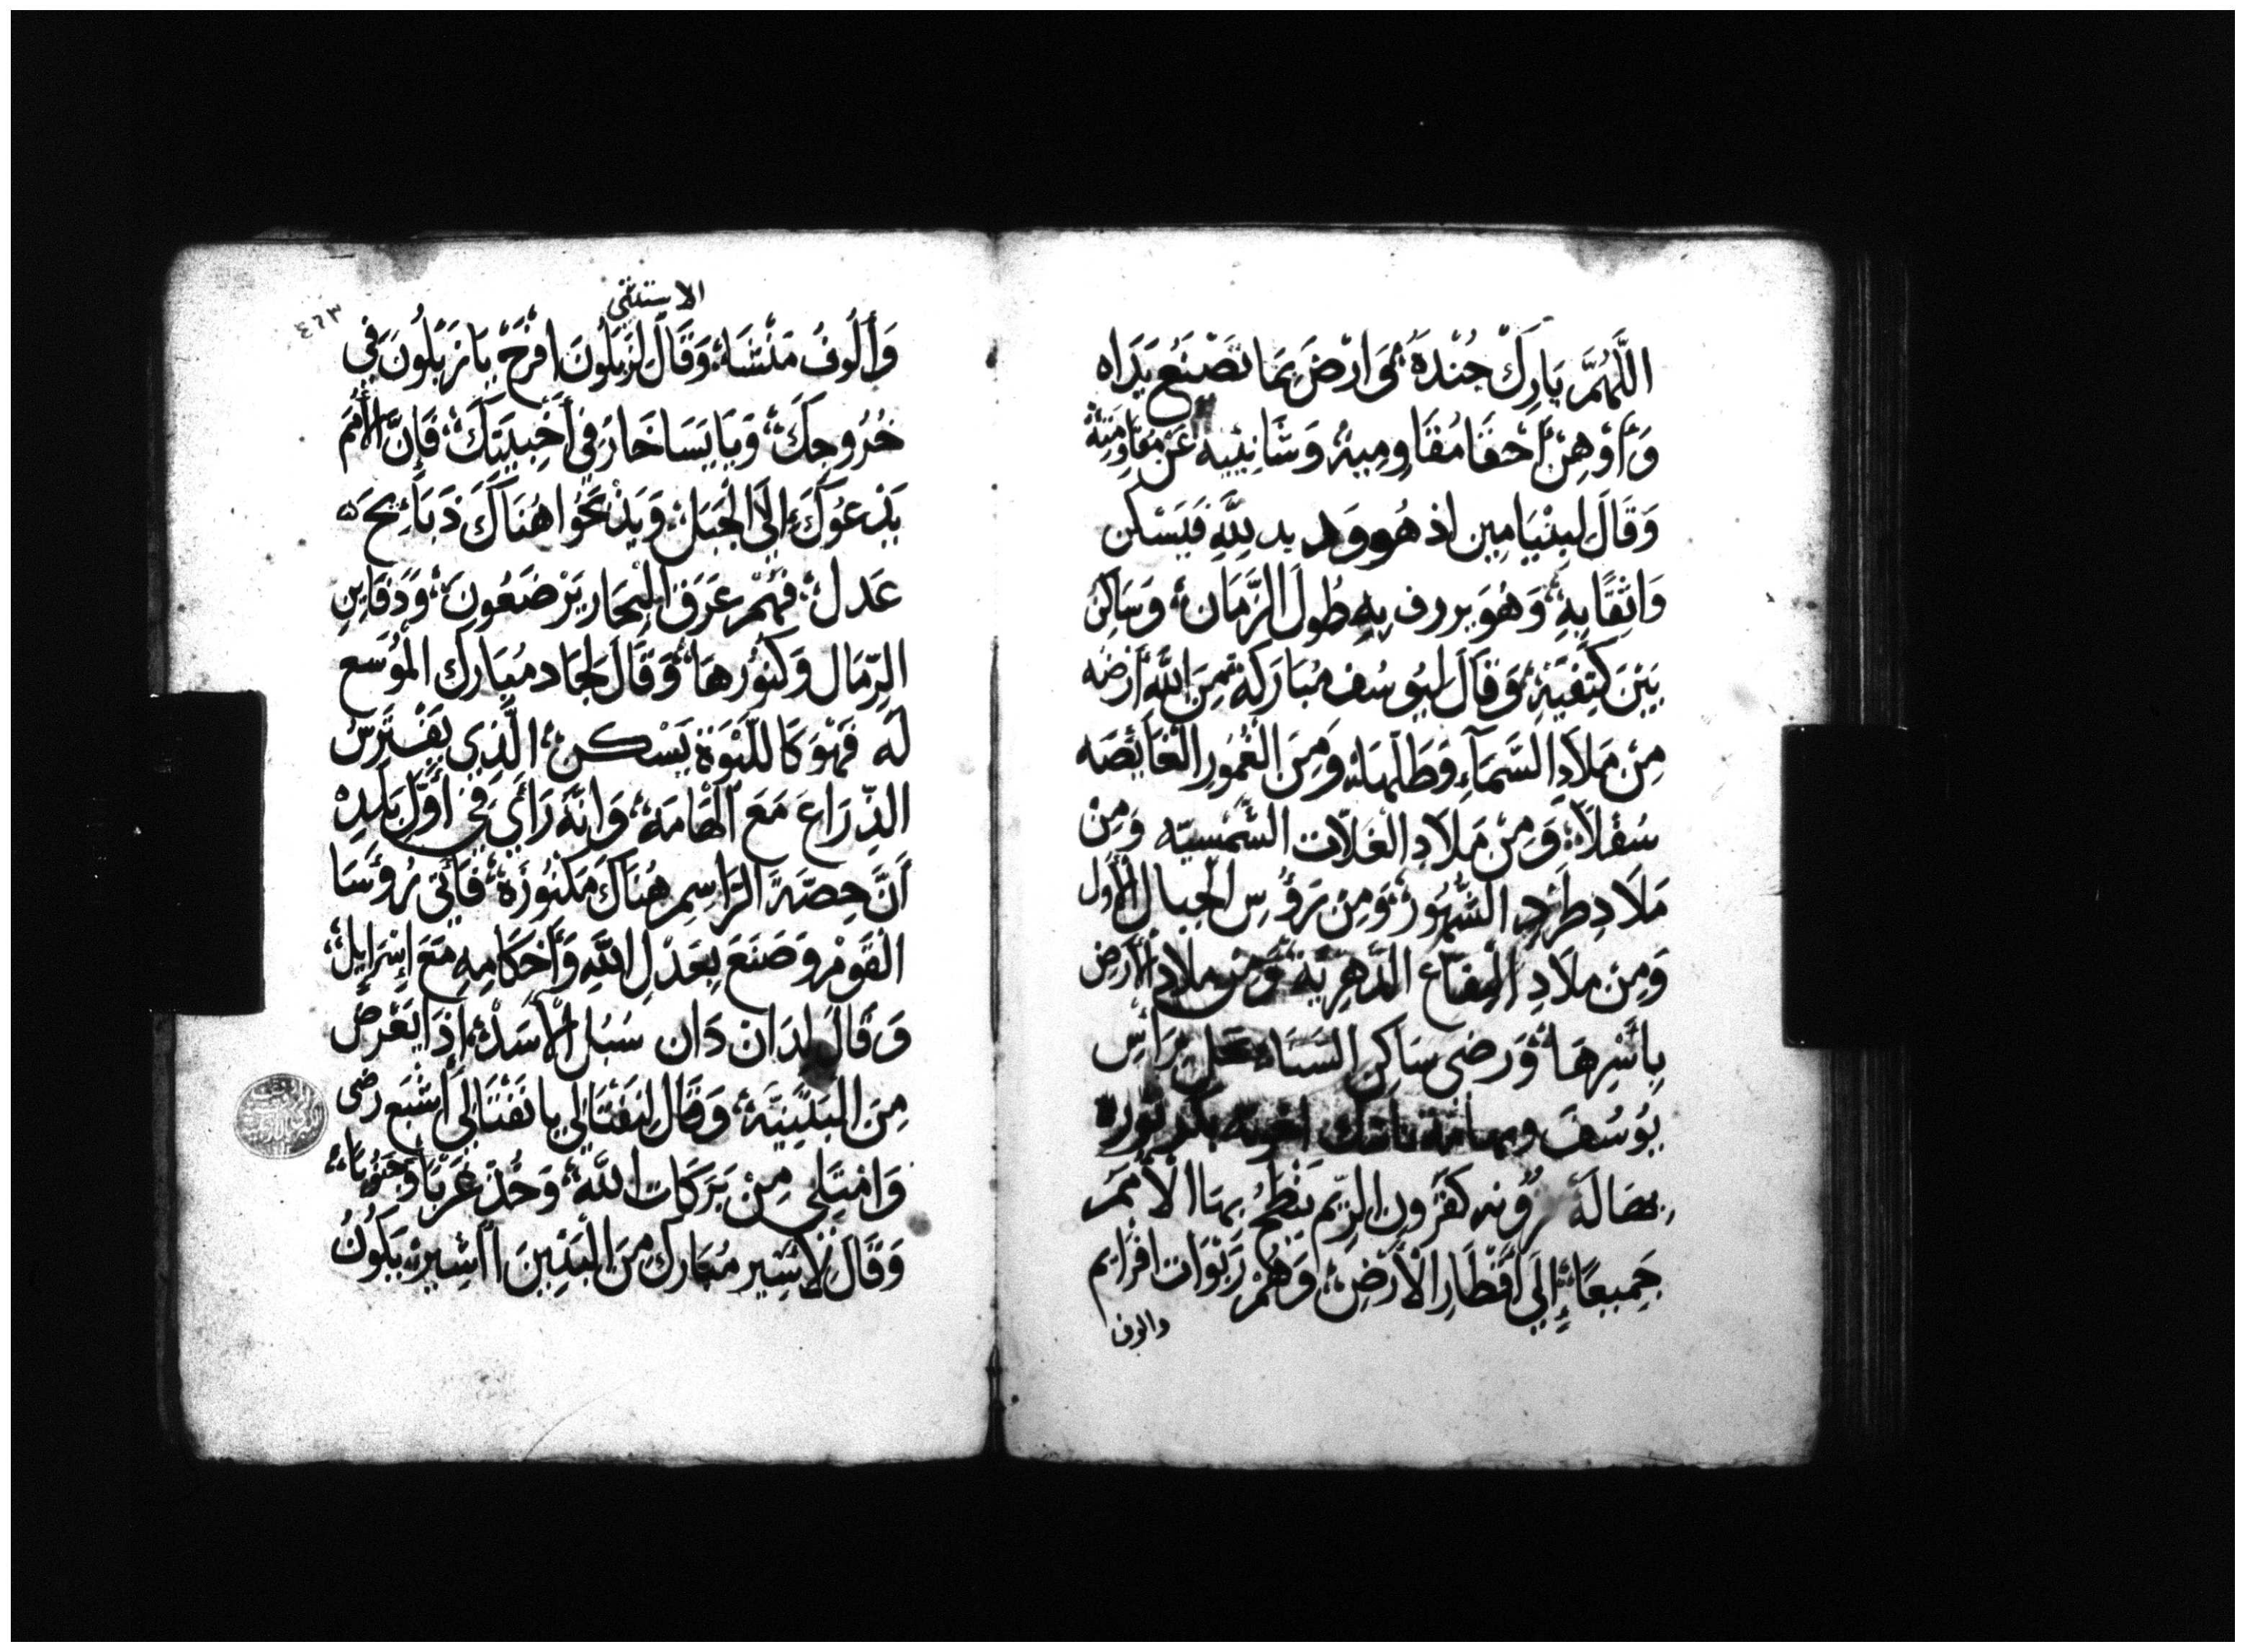 اللَّهُمَّ بَارِكْ جُنْدَهُ وَارْضَ بِمَا تَصْنَعُ يَدَاه
وَأَوْهِنْ أَحْقَا مُقَاوِمِيهُ وَشَانِئِيهِ عَنْ مُقَاوَمَتِهُ
وَقَالَ لبِنْيَامِين اذ هُو وَديد لِلَّهِ فَيَسْكن
وَاثِقًا بِهِ وَهُوَ يررف بِهِ طُولَ الزَّمَان وَسَاكِن
بَيْنَ كَتِفَيْهِ وَقَالَ لِيُوسُف مُبَارَكَة مِنَ اللَّهِ أَرْضَه
مِنْ مَلَادِ السَّمَآءِ وَطَلِّهَا وَمِنَ الْغُمُورِ الْغَايْصَه
سُفْلًا وَمِنْ مَلَادِ الغَلَّات الشَّمْسِيّه وَمِنْ
مَلَادِ طَرْدِ الشُّهُورْ وَمِنْ رَؤُسِ الْجِبَال الْأُوَل
وَمِنْ مَلَادِ الْيفَاع الدَّهْرِيَّة وَمِنْ ملَادِ الْأَرْض
بِأَسْرِهَا وَرضى سَاكِن السَنَاء رَأْسِ
يُوسُفَ
اصَالَة كَقَرُونِ الرِّيم يَنْطَحُ بِهَا الْأُمَمَ
جَمِيعًا إِلَى أَقْطَارِ الْأَرْضِ وَهُمْ رَبْوَات افْرَايم
والوف
الاستثنى
٤٦٣
وَأُلُوفُ مَنْشَا وَقَالَ لِزَبُلُونَ افْرَحْ يَا زَبُلُونَ فِي
خُرُوجِكَ وَيَا يَسَاخَارُ فِي أَخْبِيَتِكَ فَإِنَّ الْأُمَمَ
يَدْعُوكَ إِلَى الْجَبَل وَيَذْبَحُوا هُنَاكَ ذَبَائِحَ ٥
عَدل فَهُمْ عَرَقَ الْبِحَارِ يَرْضَعُونَ وَدَفَايِنِ
الرِّمَال وَكنُوزهَا وَقَالَ لجَاد مُبَارَك المُوسَع
لَه فَهُوَ كَاللَّبْوَة يَسْكن الَّذِي يَفْتَرِسُ
الذِّرَاعَ مَعَ الْهَامَة وَانَّه رَأَى فِي أَوَّل بَلَدِهْ
أَنَّ حِصَّة الرَّاسِم هُنَاكَ مَكْنُوزَة فَأَتَى رُؤَسَا
القَوْم وَصَنَعَ بِعَدْلِ اللَّهِ وَأَحْكَامِهِ مَعَ إِسْرَايِلَ
وَقَالَ لِدَان دَان سَبُل الْأَسَدْ إِذَا يَعْرِضُ
مِنَ البَثَنِيَّة وَقَالَ لِنَفْتَالِي يا نَفْتَالِي اشْبَع رضى
وَامْتَلِي مِنْ بَرَكَات اللَّه وَحُذْ غَرْبًا وَجَنُوبَا
وَقَالَ لِاشِير مُبَارَك مِنَ الْبَنِينَ اَشِير يَكُونُ